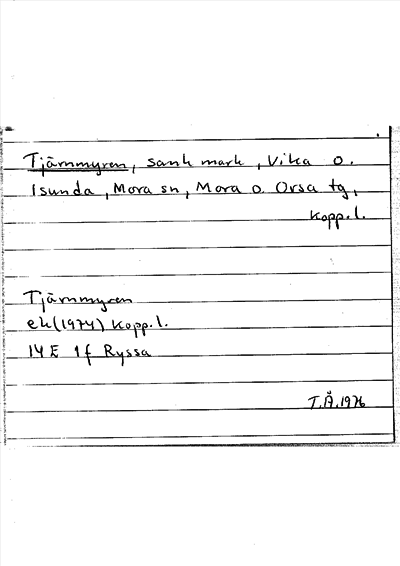 Tjärnmyren, sank mark, Vika o.
Isunda, Mora sn, Mora o. Orsa tg,
Kopp. l.
Tjärnmyren
ek (1974) Kopp. l.
14 E 1 f Ryssa
T.Å. 1976